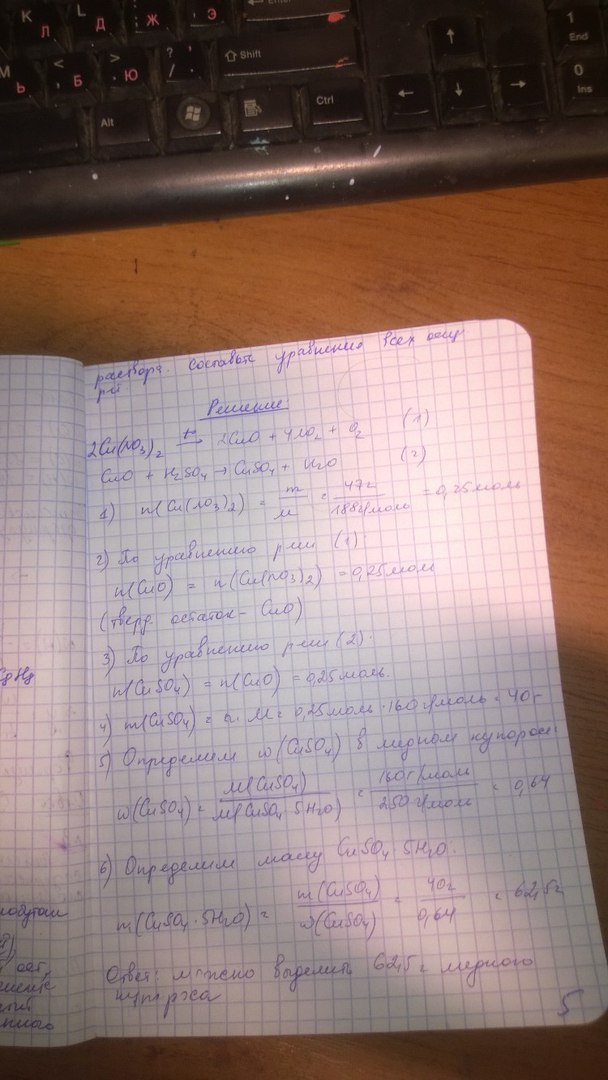 К
Л
L
Д
:
;
Ж
"
'
Э
Enter
М
Ь
<
,
Б
>
.
Ю
?
/
Shift
Alt
Ctrl
↑
←
↓
→
1
End
0
Ins
раствора. Составьте уравнения всех
Решение
2Cu(NO₃)₂ t° → 2CuO + 4NO₂ + O₂ (1)
CuO + H₂SO₄ → CuSO₄ + H₂O (2)
1) n(Cu(NO₃)₂) = m/M = 47г/188г/моль = 0,25моль
2) По уравнению р-ции (1):
n(CuO) = n(Cu(NO₃)₂) = 0,25моль
(тверд. остаток - CuO)
3) По уравнению р-ции (2):
n(CuSO₄) = n(CuO) = 0,25моль.
4) m(CuSO₄) = n · M = 0,25моль · 160г/моль = 40г
5) Определим ω(CuSO₄) в медном купоросе:
ω(CuSO₄) = M(CuSO₄)/M(CuSO₄·5H₂O) = 160г/моль/250г/моль = 0,64
6) Определим массу CuSO₄·5H₂O:
m(CuSO₄·5H₂O) = m(CuSO₄)/ω(CuSO₄) = 40г/0,64 = 62,5г
Ответ: можно выделить 62,5г медного
купороса
5